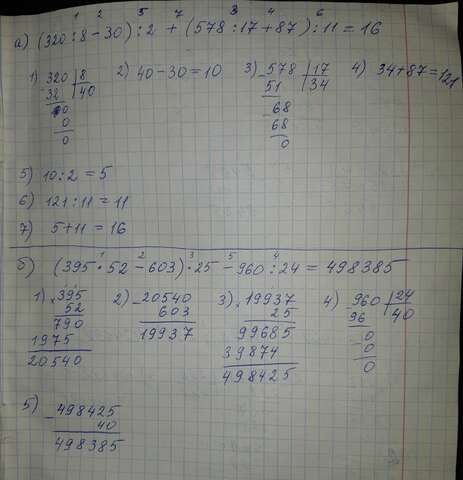 1 2 5 7 3 4 6
а) (320 : 8 - 30) : 2 + (578 : 17 + 87) : 11 = 16
1) 320 | 8 2) 40 - 30 = 10 3) 578 | 17 4) 34 + 87 = 121
32 | 40 51 | 34
0 68
0 68
0 0
5) 10 : 2 = 5
6) 121 : 11 = 11
7) 5 + 11 = 16
1 2 3 5 4
б) (395 · 52 - 603) · 25 - 960 : 24 = 498385
1) × 395 2) - 20540 3) × 19937 4) - 960 | 24
52 603 25 96 | 40
790 19937 99685 0
1975 39874 - 0
20540 498425 0
5) - 498425
40
498385